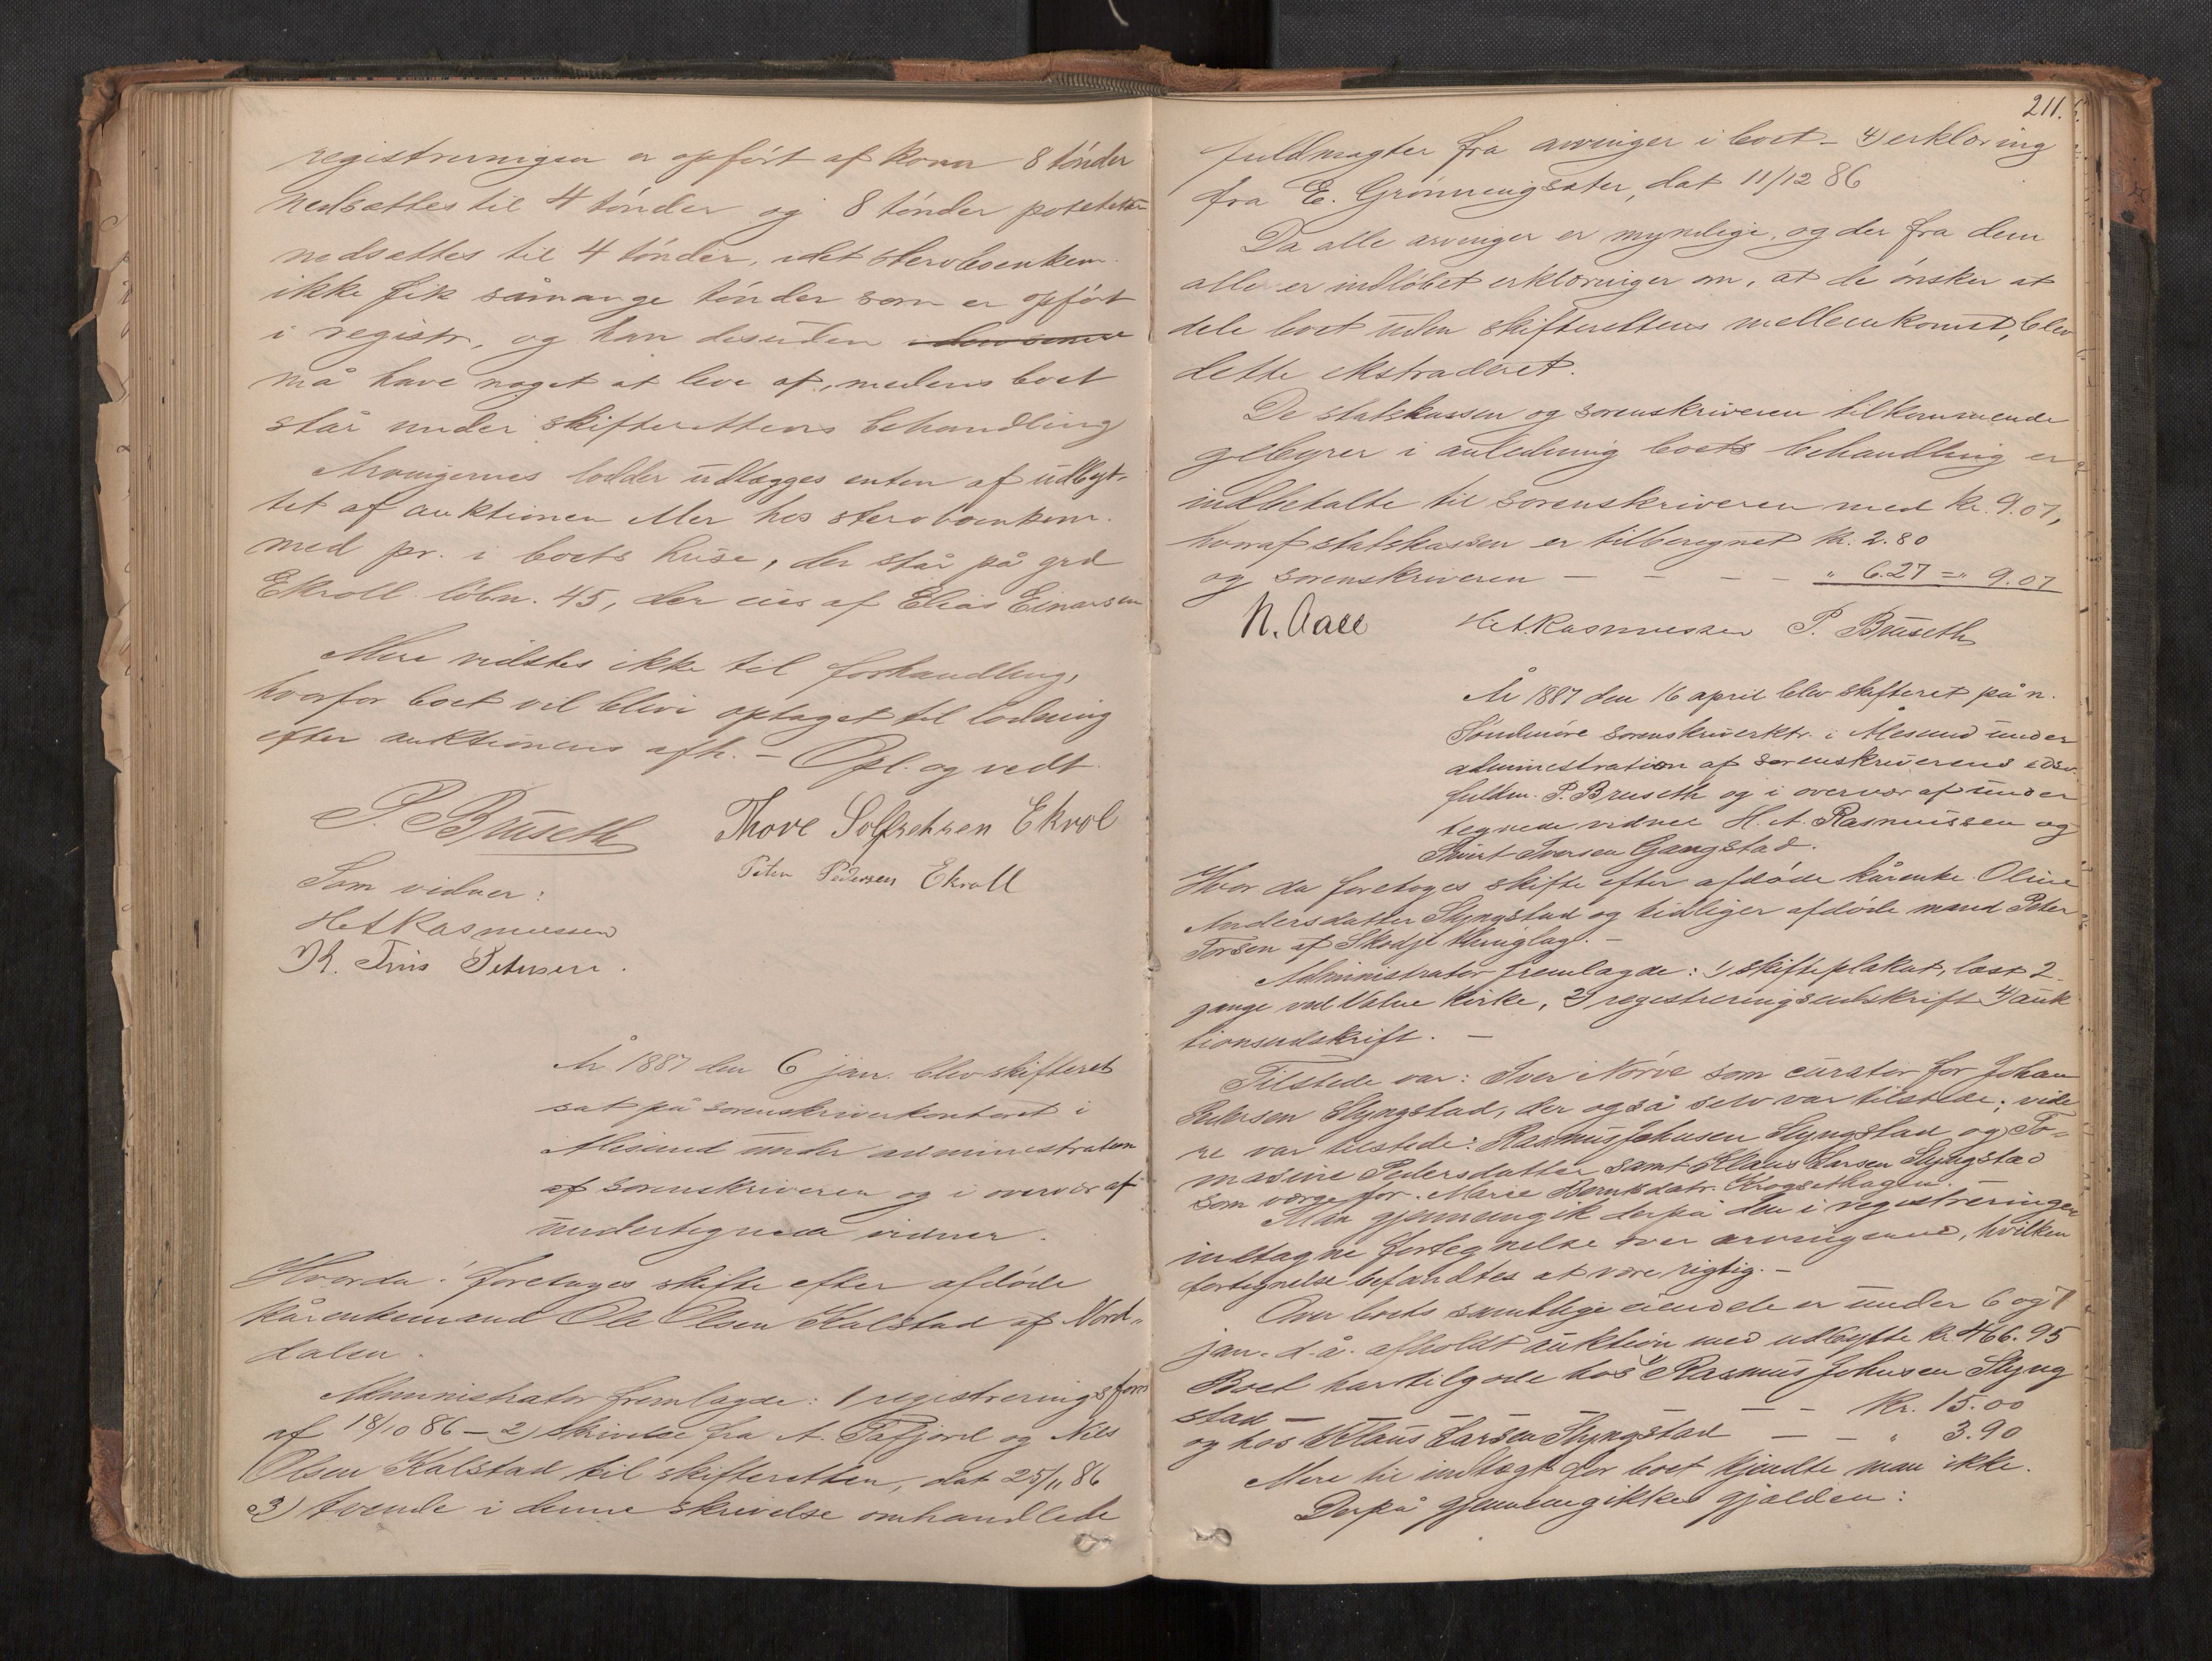 registreringen er opført af korn 8 tønder
nedsættes til 4 tønder og 8 tønder poteter
nedsættes til 4 tønder, idet sterboenkem.
ikke fik såmange tønder som er opført
i registr, og han desuden
må have noget at leve af, medens boet
står under skifterettens behandling
Arvingernes lodder udlægges enten af udbyt-
tet af auktionen eller hos sterboenkem.
med pr. i boets huse, der står på grd
Ekroll løbn. 45, der eies af Elias Einarsen
Mere vidstes ikke til forhandling,
hvorfor boet vil blive optaget til lodning
efter auktionens afh. - Opl. og vedt.
P. Bruseth
Thore Solfrehsen Ekrol
Peter Pedersen Ekroll
Som vidner:
H A Rasmussen
K. Friis Petersen.
År 1887 den 6 jan. blev skifteret
sat på sorenskriverkontoret i
Ålesund under administration
af sorenskriveren og i overvær af
undertegnede vidner.
Hvorda: foretages skifte efter afdøde
kårenkemand Ole Olsen Kalstad af Nord-
dalen.
Administrator fremlagde: 1 registreringsforr
af 18/10 86 - 2) skrivelse fra A. Tafjord og Nils
Olsen Kalstad til skifteretten, dat 25/11 86
3) tvende i denne skrivelse omhandlede
211.
fuldmagter fra arvinger i boet - 4) erklæring
fra E. Grønningsæter, dat 11/12 86
Da alle arvinger er myndige, og der fra dem
alle er indløbet erklæringer om, at de ønsker at
dele boet uden skifterettens mellemkomst, blev
dette ekstraderet.
De statskassen og sorenskriveren tilkommende
gebyrer i anledning boets behandling er
indbetalte til sorenskriveren med kr. 9.07,
hvoraf statskassen er tilberegnet kr. 2.80
og sorenskriveren - - - - " 6.27 = " 9.07
N. Aall H A Rasmussen P. Bruseth
År 1887 den 16 april blev skifteret på n.
Søndmøre sorenskriverktr. i Ålesund under
administration af sorenskriverens edsv.
fuldm. P. Bruseth og i overvær af under
tegnede vidner H. A. Rasmussen og
Sivert Iversen Gangstad.
Hvor da foretoges skifte efter afdøde kårenke Oline
Andersdatter Slyngstad og tidligere afdøde mand Peter
Torsen af Skodje thinglag. -
Administrator fremlagde: 1) skifteplakat, læst 2
gange ved Vatne kirke, 2) registreringsudskrift 4) auk
tionsudskrift. -
Tilstede var: Iver Nørve som curator for Johan
Pedersen Slyngstad, der også selv var tilstede; vide
re var tilstede: Rasmus Johnsen Slyngstad og To-
masine Pedersdatter samt Klaus Larsen Slyngstad
som værge for Marie Berntsdatr. Krogsethagen.
Man gjennemgik derpå den i registreringen
indtagne fortegnelse over arvingerne, hvilken
fortegnelse befandtes at være rigtig. -
Over boets samtlige eiendele er under 6 og 7
jan. d. å. afholdt auktion med udbytte kr. 466.95
Boet har tilgode hos Rasmus Johnsen Slyng
stad - - - - - - kr. 15.00
og hos Klaus Larsen Slyngstad - - " 3.90
Mere til indtægt for boet kjendte man ikke.
Derpå gjennemgikkes gjælden: